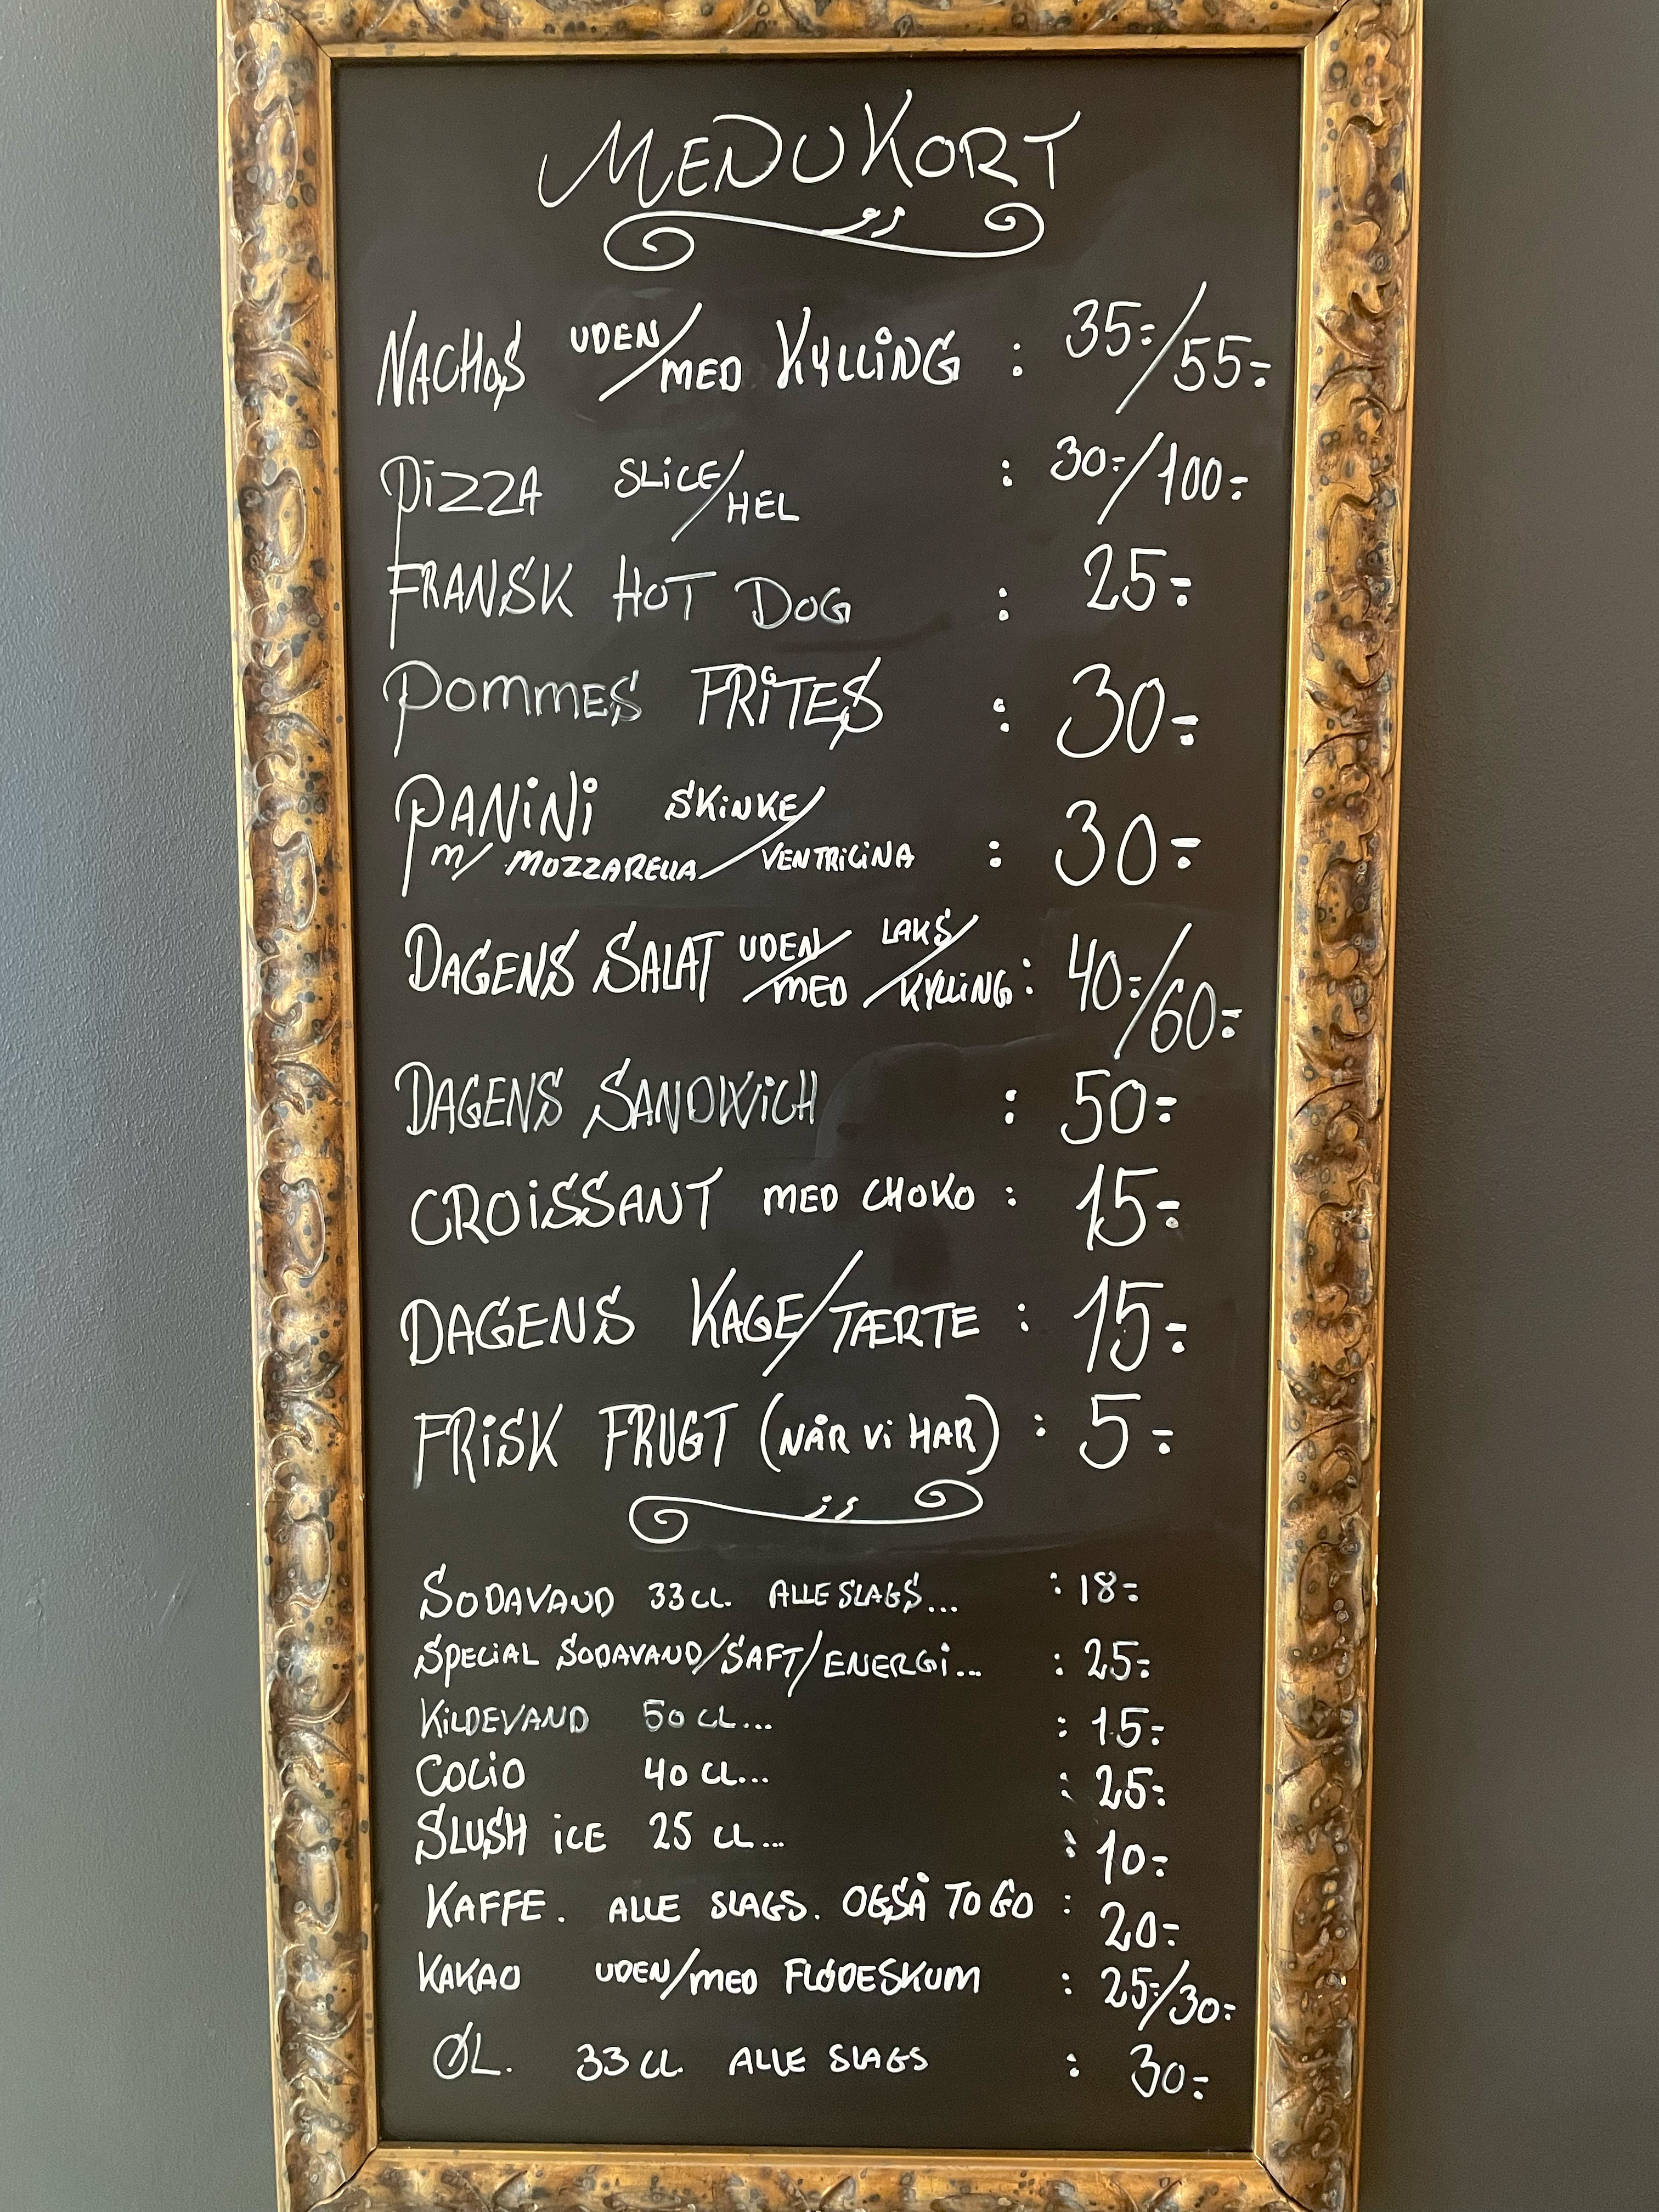 MENUKORT
NACHOS UDEN/MED KYLLING : 35,-/55,-
PIZZA SLICE/HEL : 30,-/100,-
FRANSK HOT DOG : 25,-
POMMES FRITES : 30,-
PANINI SKINKE/
m/ MOZZARELLA/VENTRICINA : 30,-
DAGENS SALAT UDEN/MED LAKS/KYLLING : 40,-/60,-
DAGENS SANDWICH : 50,-
CROISSANT MED CHOKO : 15,-
DAGENS KAGE/TÆRTE : 15,-
FRISK FRUGT (NÅR Vi HAR) : 5,-
SODAVAND 33 CL. ALLE SLAGS... : 18,-
SPECIAL SODAVAND/SAFT/ENERGI... : 25,-
KILDEVAND 50 CL... : 15,-
COCIO 40 CL... : 25,-
SLUSH ICE 25 CL... : 10,-
KAFFE. ALLE SLAGS. OGSÅ TO GO : 20,-
KAKAO UDEN/MED FLØDESKUM : 25,-/30,-
ØL. 33 CL. ALLE SLAGS : 30,-